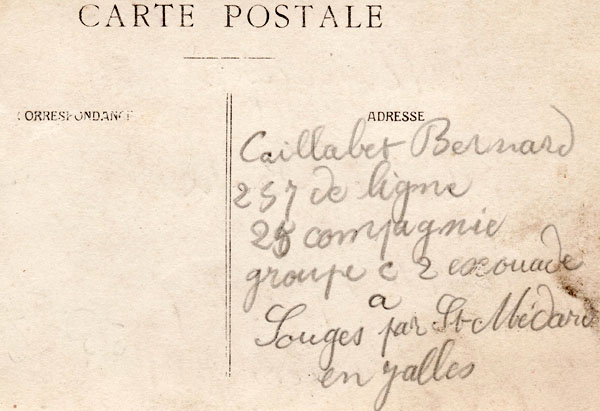 CARTE POSTALE
CORRESPONDANCE
ADRESSE
Caillabet Bernard
257 de ligne
25 compagnie
groupe c 2 escouade
a
Souges par St Médard
en jalles